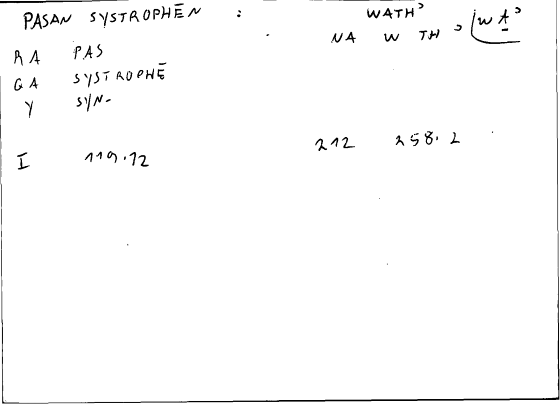 PASAN SYSTROPHĒN : WATHʾ
NA W TH ʾ (W A̲ʾ
RA PAS
GA SYSTROPHĒ
Y SYN-
I 119.12 212 258.2